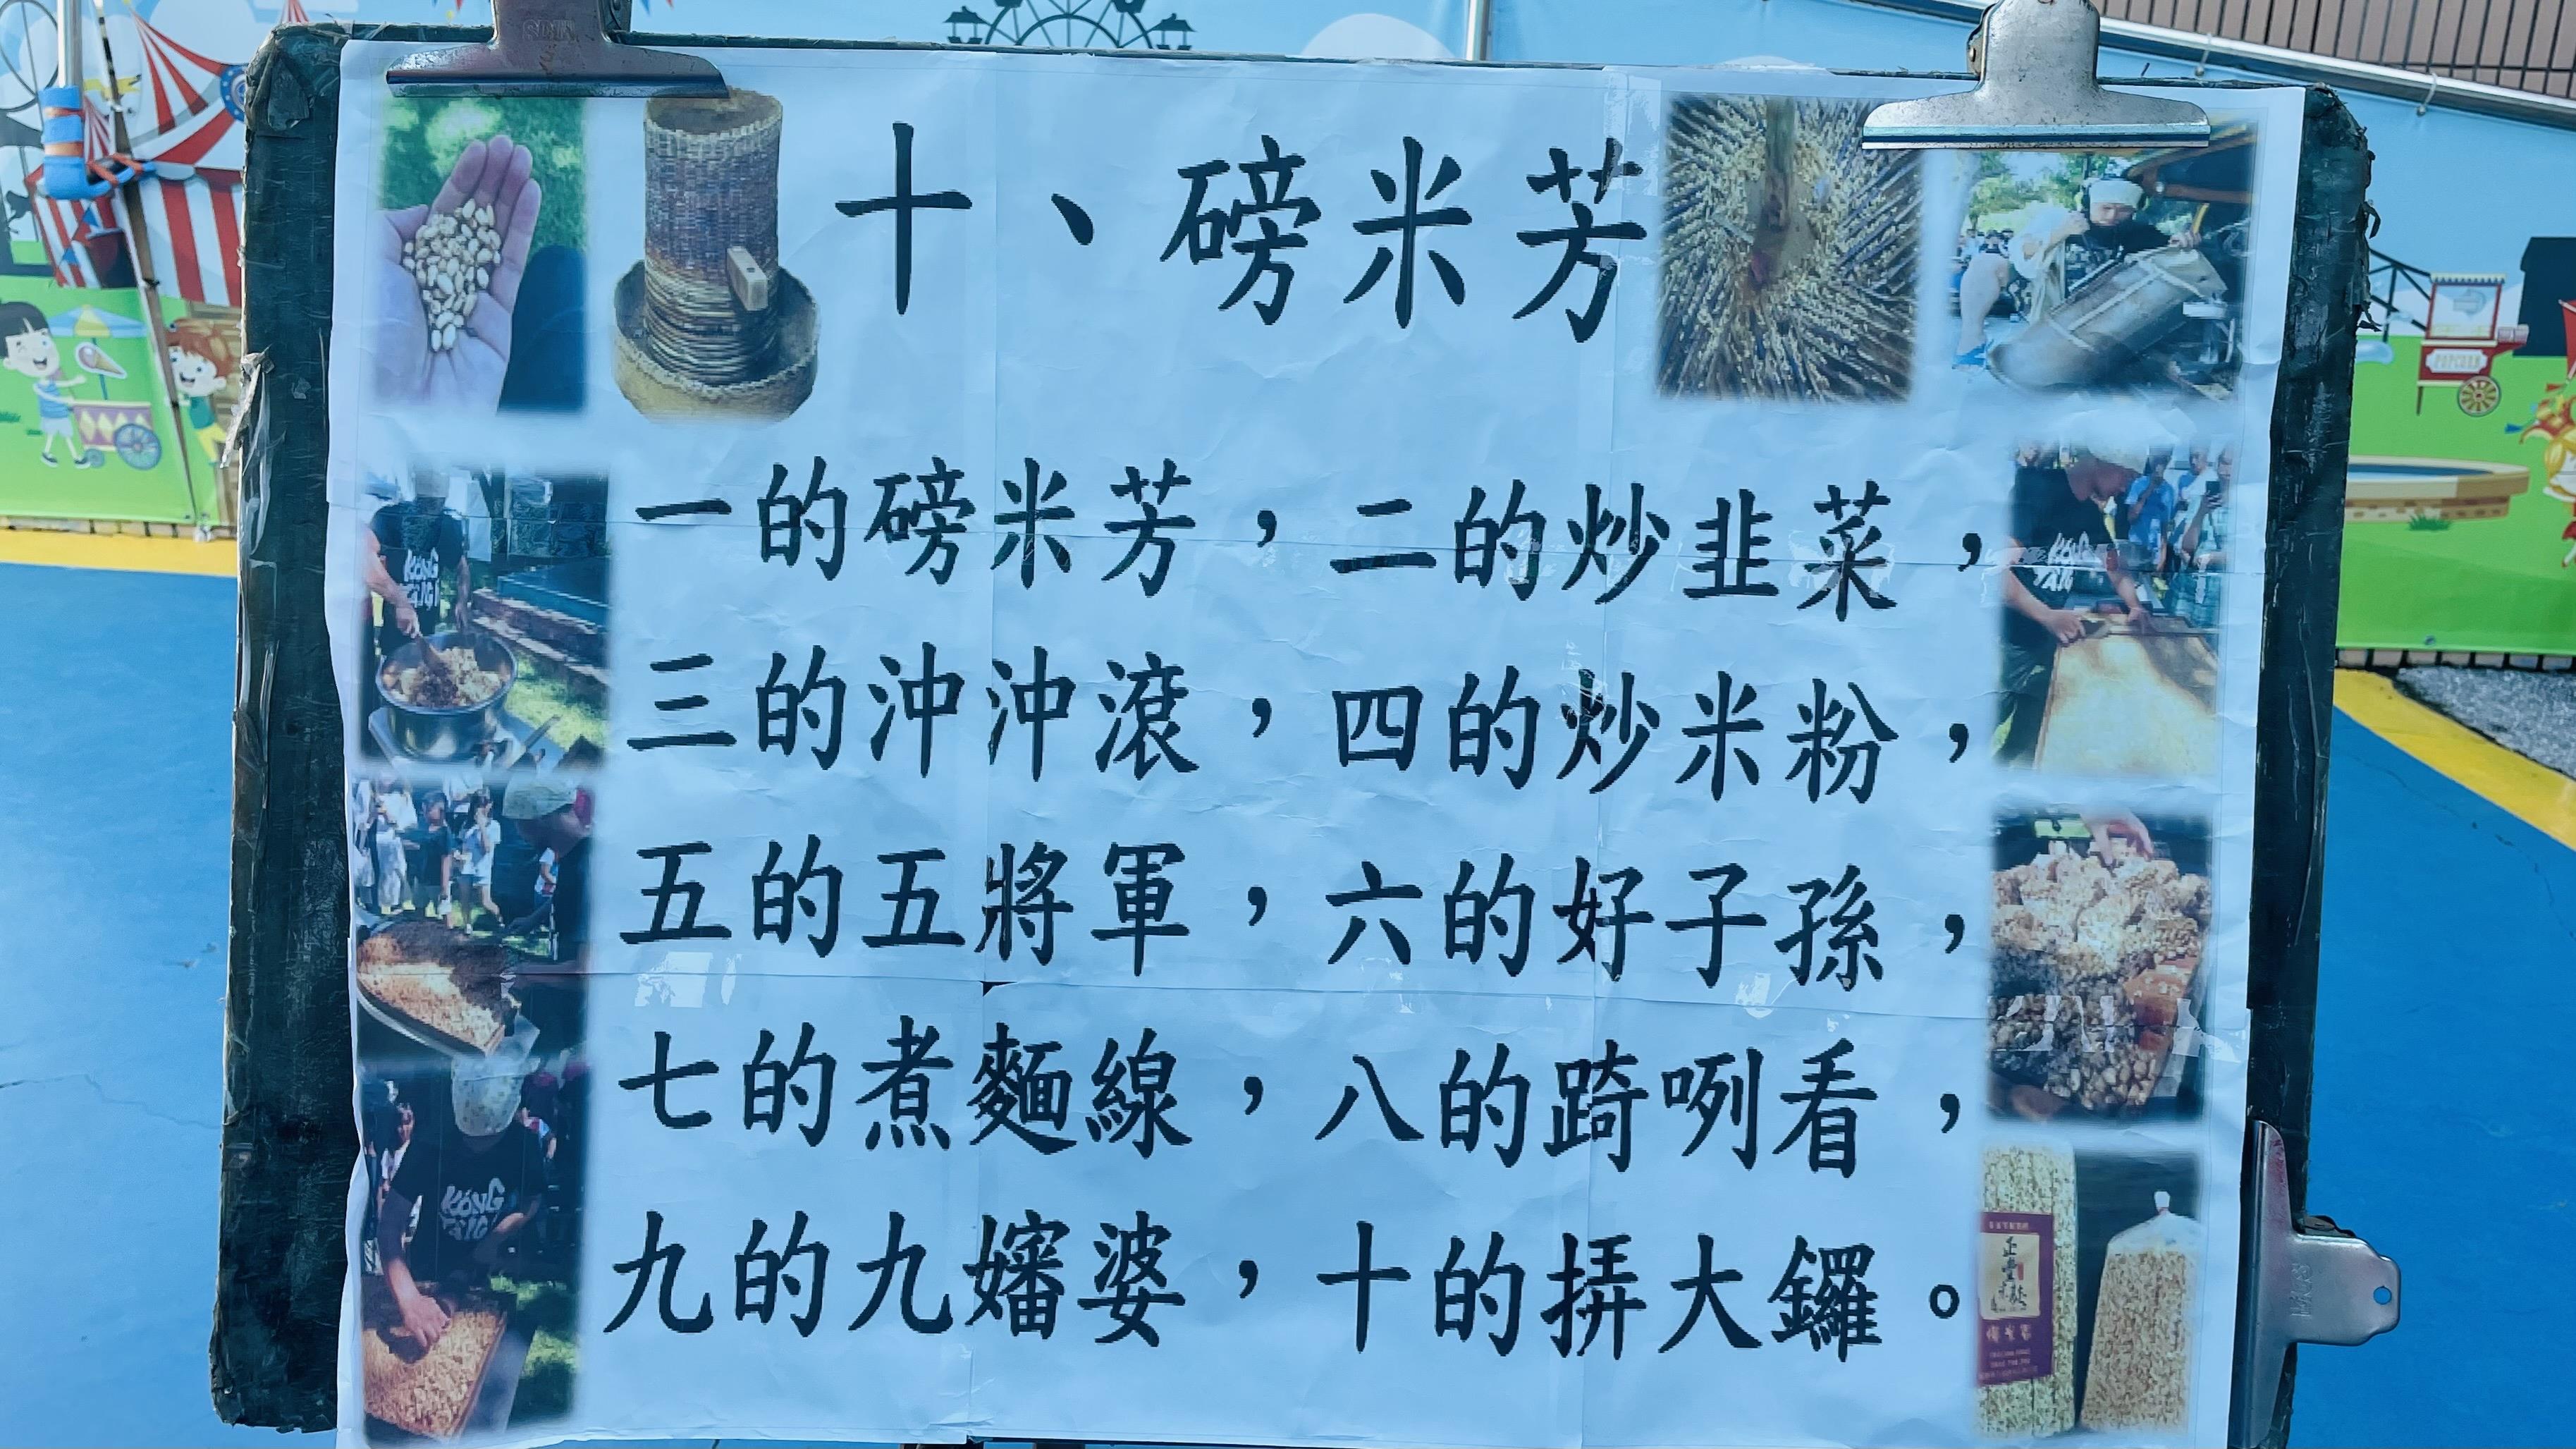 十、磅米芳
一的磅米芳，二的炒韭菜，
三的沖沖滾，四的炒米粉，
五的五將軍，六的好子孫，
七的煮麵線，八的踦咧看，
九的九嬸婆，十的挵大鑼。
KóNG
TâIGI
KóNG
TâIGI
POPCORN